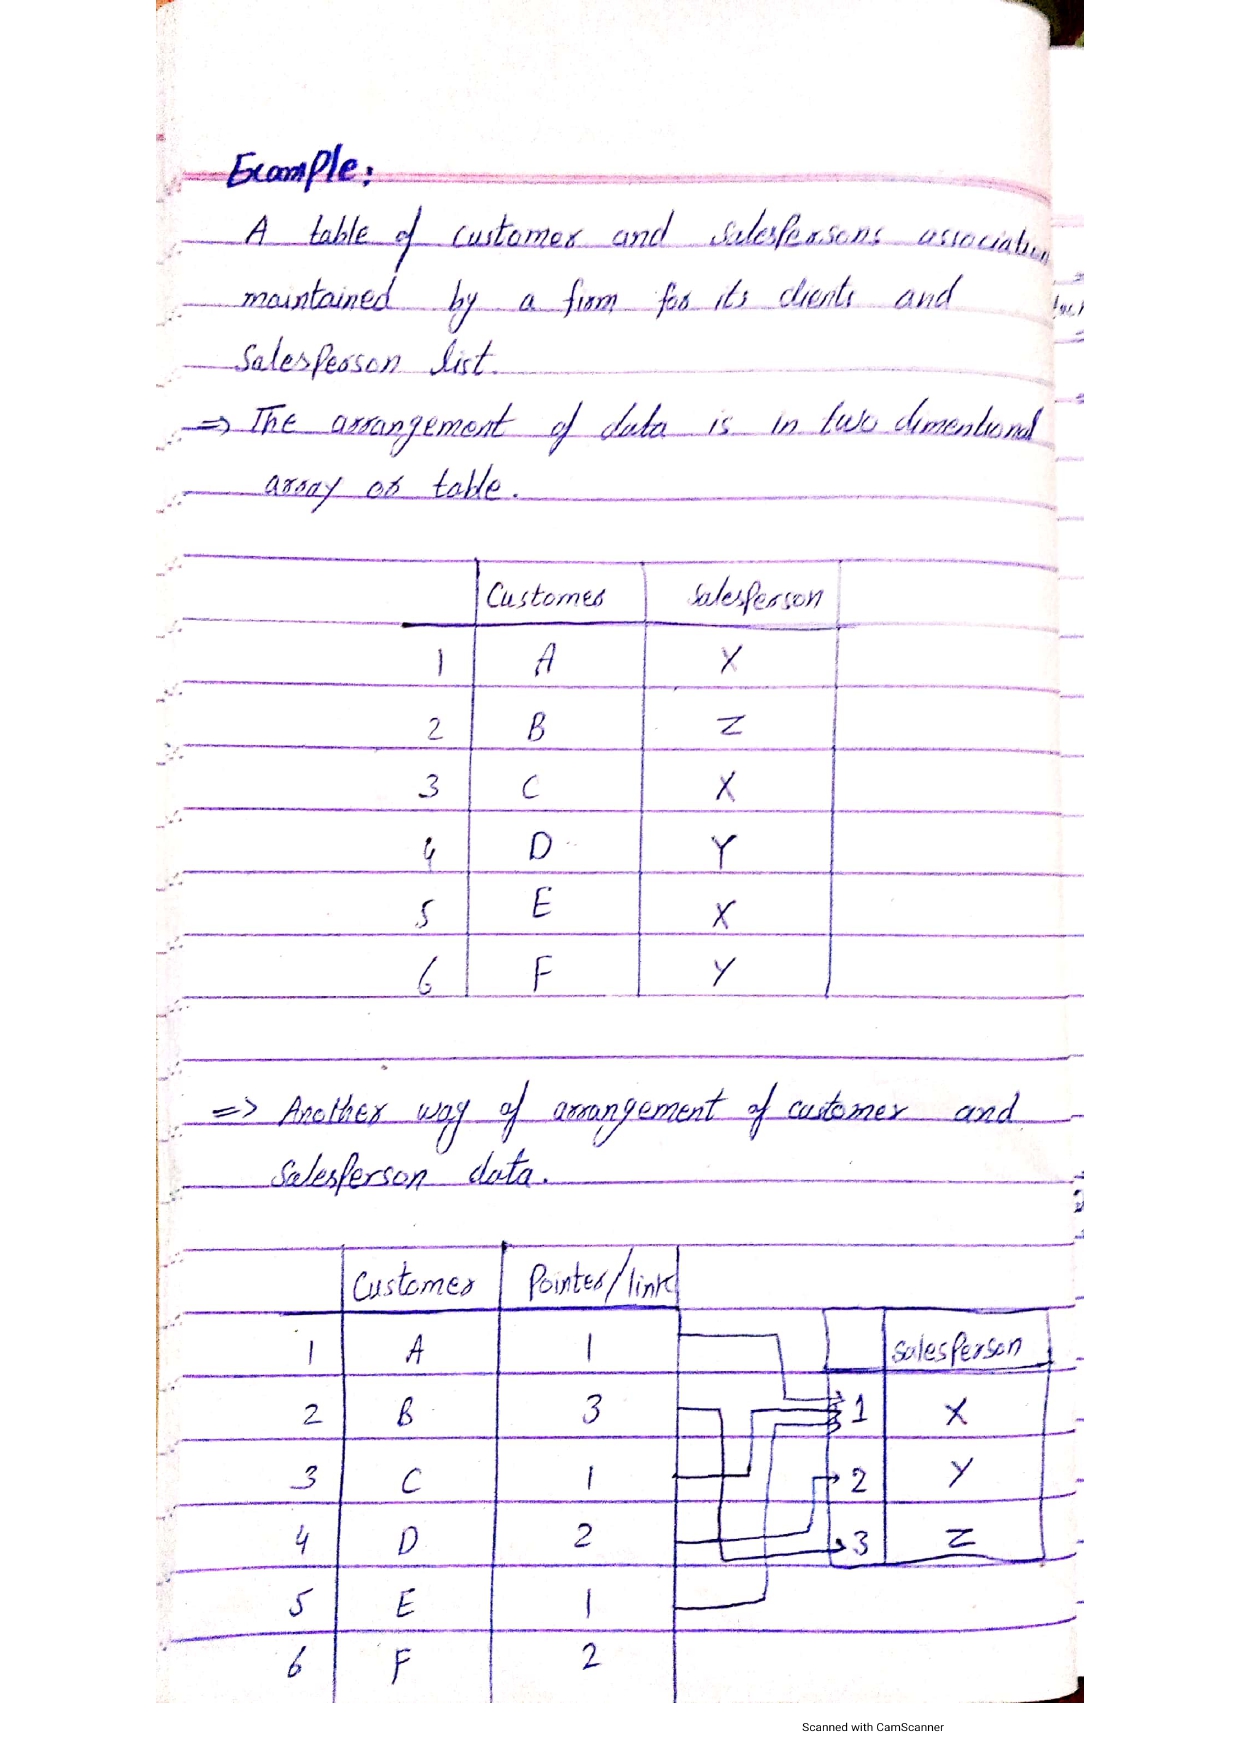 Example:
A table of customer and salespersons association
maintained by a firm for its clients and
Salesperson list.
=> The arrangement of data is in two dimentional
array or table.
Customer Salesperson
1 A X
2 B Z
3 C X
4 D Y
5 E X
6 F Y
=> Another way of arrangement of customer and
Salesperson data.
Customer Pointer/link
salesperson
1 A 1
1 X
2 B 3
3 C 1
2 Y
4 D 2
3 Z
5 E 1
6 F 2
Scanned with CamScanner